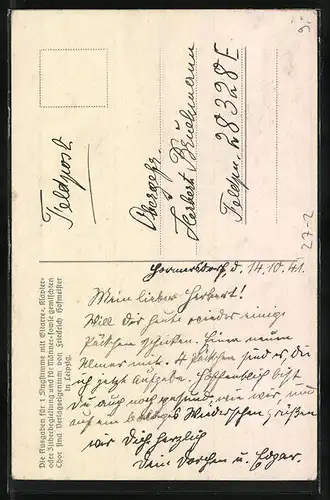 Feldpost
Obergefr.
Herbert Bruchmann
Feldpn. 28328 E
Hormersdorf d. 14.10.41.
Mein lieber Herbert!
Will Dir heute wieder einige
Päckchen schicken. Einen neuen
mit. 4 Päckchen sind es, die
ich jetzt aufgebe. Hoffentlich bist
Du auch noch gesund, wie wir, und
auf ein baldiges Wiedersehen grüßen
wir Dich herzlich
Dein Dorchen u. Edgar.
Die Ausgaben für 1 Singstimme mit Gitarre-, Klavier-
oder Zitherbegleitung und für Männer- sowie gemischten
Chor sind Verlagseigentum von Friedrich Hofmeister
in Leipzig.
27-2